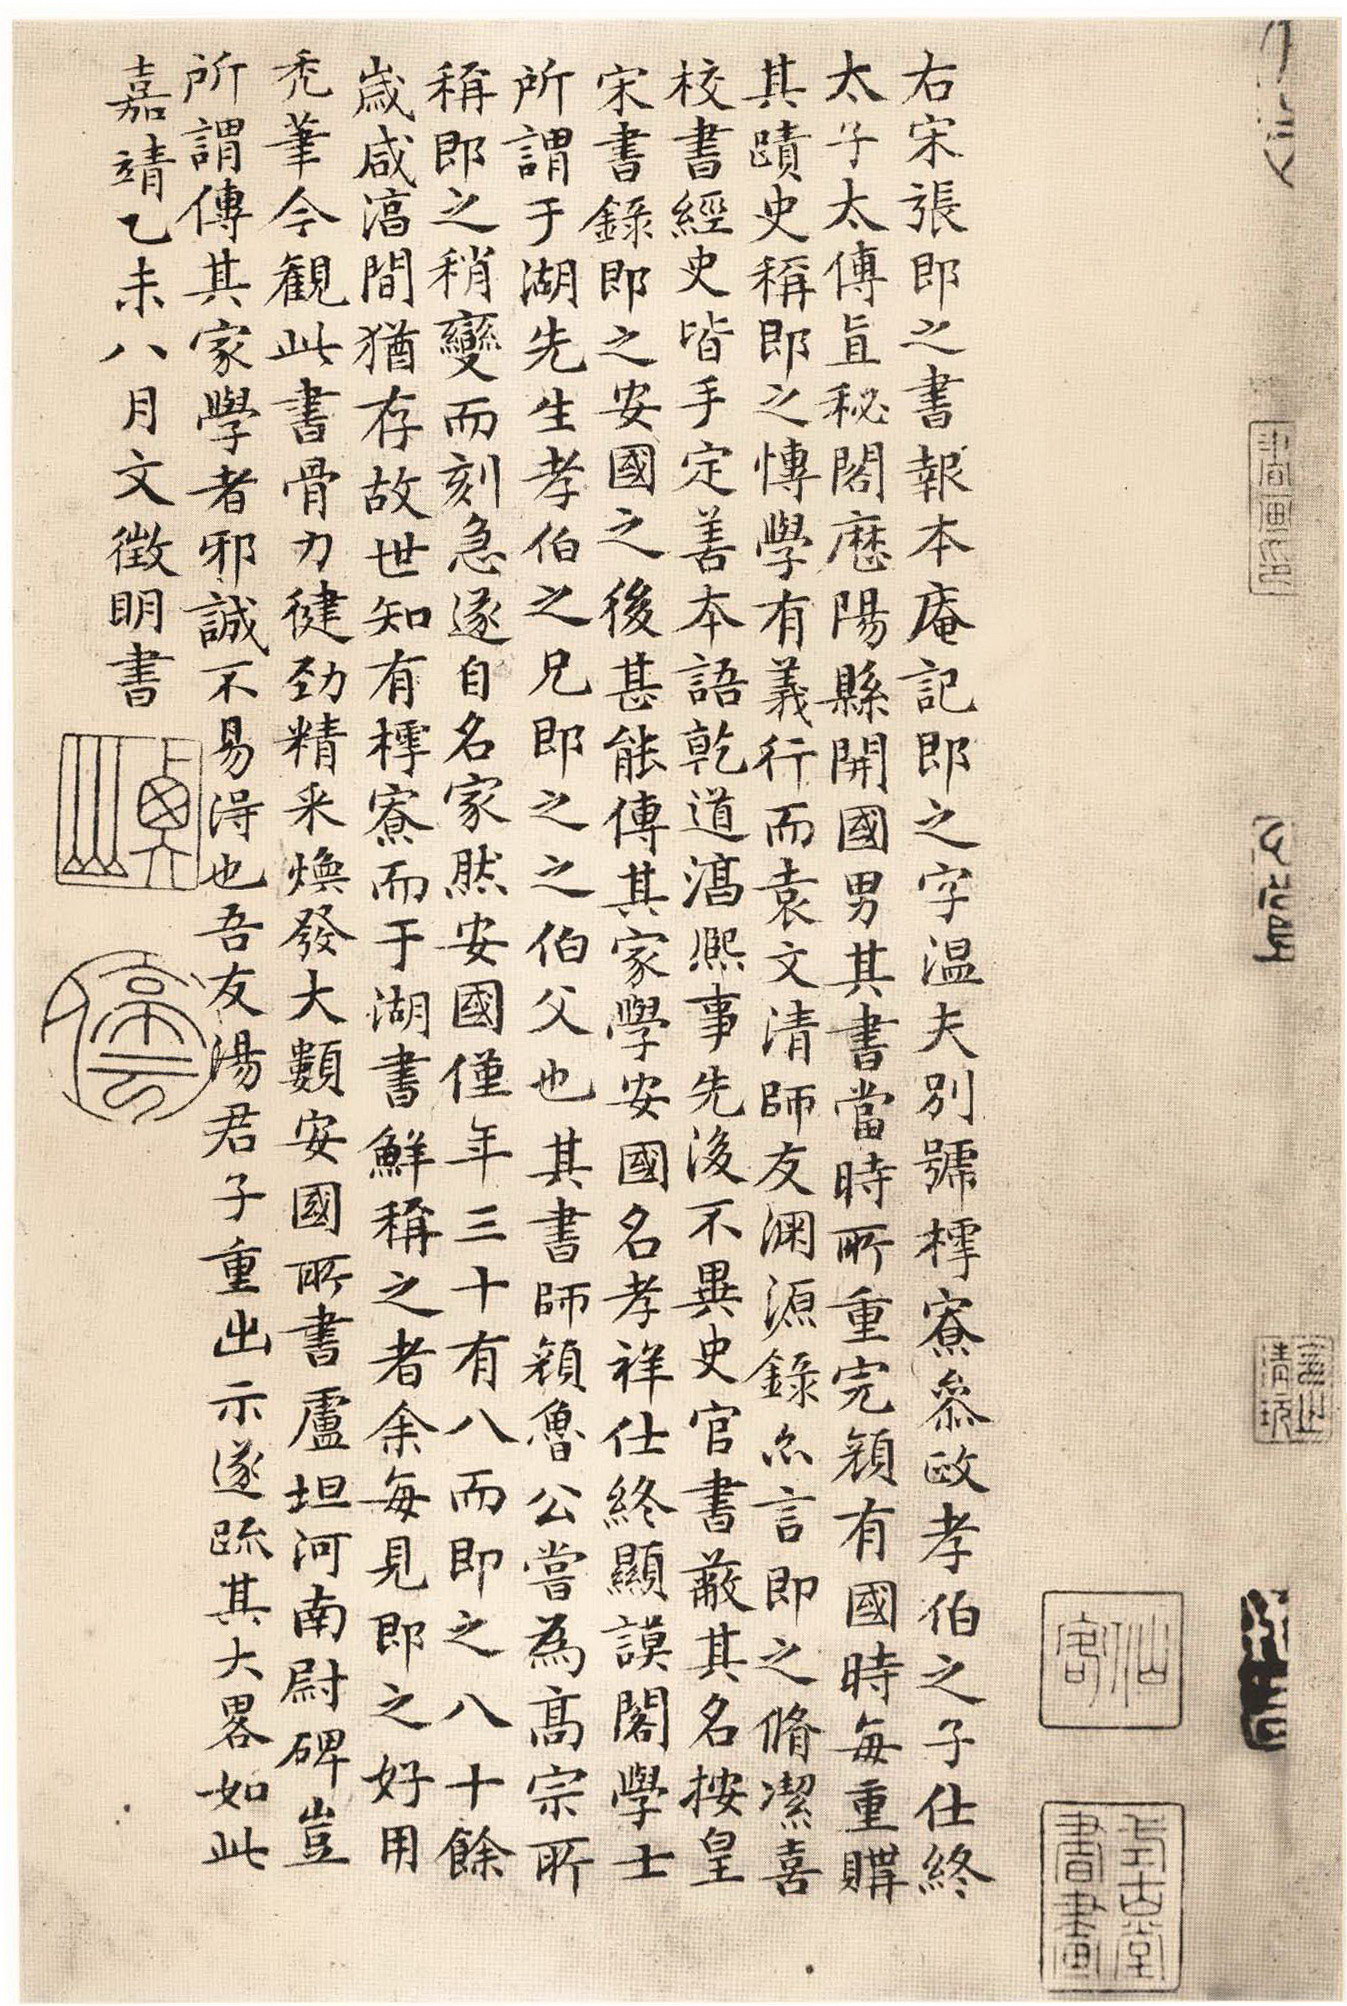 右宋張即之書報本庵記即之字温夫別號樗寮叅政孝伯之子仕終
太子太傅直秘閣歴陽縣開國男其書當時所重完顔有國時每重購
其蹟史稱即之博學有義行而袁文清師友淵源錄亦言即之脩潔喜
校書經史皆手定善本語乾道淳熈事先後不異史官書蔽其名按皇
宋書錄即之安國之後甚能傳其家學安國名孝祥仕終顯謨閣學士
所謂于湖先生孝伯之兄即之之伯父也其書師顔魯公嘗為髙宗所
稱即之稍變而刻急遂自名家然安國僅年三十有八而即之八十餘
歲咸淳間猶存故世知有樗寮而于湖書鮮稱之者余每見即之好用
禿筆今觀此書骨力健勁精采煥發大類安國所書盧坦河南尉碑豈
所謂傳其家學者邪誠不易得也吾友湯君子重出示遂疏其大畧如此
嘉靖乙未八月文徵明書
仙客
式古堂書畫